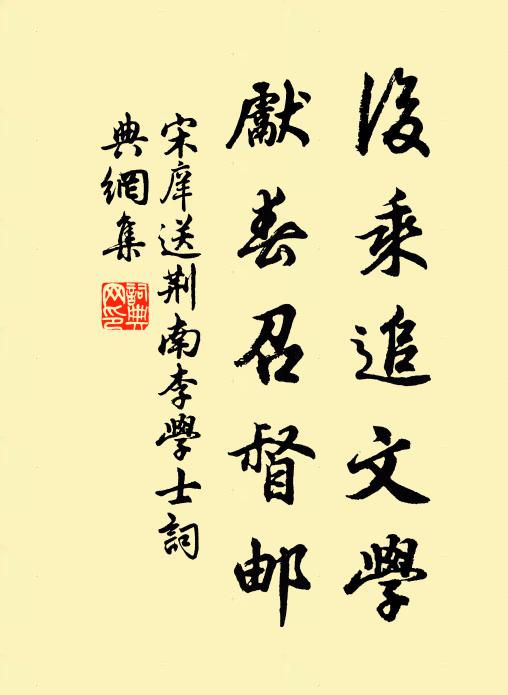 後乘追文學
獻春召督邮
宋庠送荆南李學士詞
典網集
詞典網印